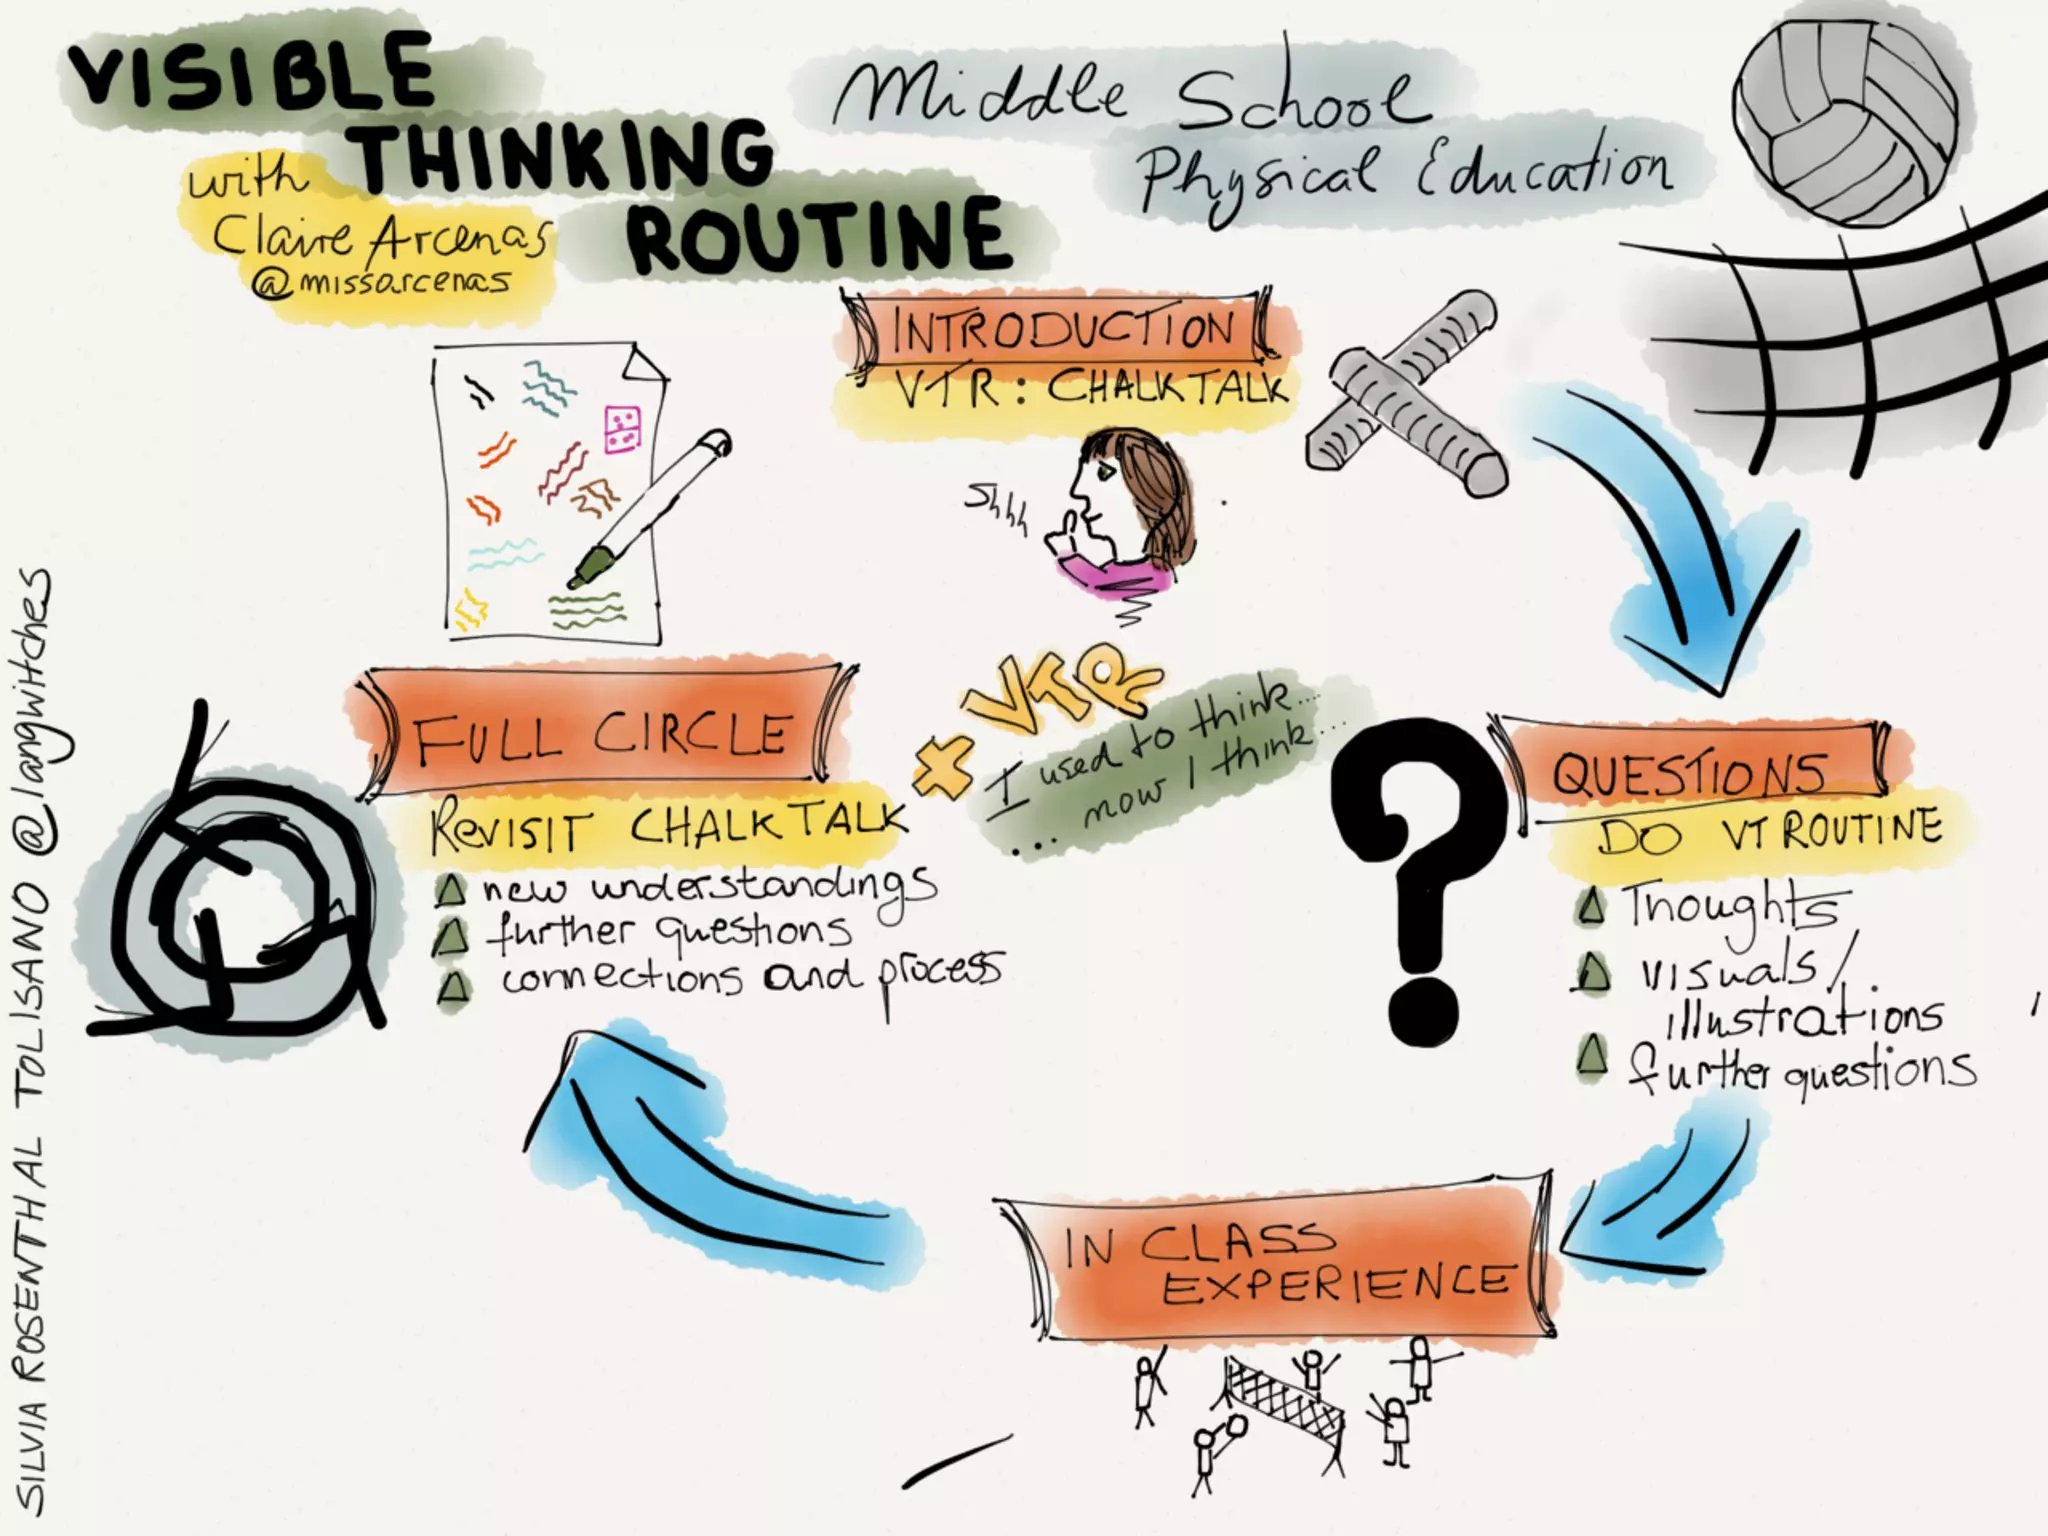 VISIBLE
THINKING
ROUTINE
with
Claire Arcenas
@missarcenas
Middle School
Physical Education
INTRODUCTION
VTR: CHALKTALK
Shhh
QUESTIONS
DO VT ROUTINE
Thoughts
visuals/
illustrations
further questions
IN CLASS
EXPERIENCE
FULL CIRCLE
REVISIT CHALKTALK
new understandings
further questions
connections and process
+ VTR
I used to think...
... now I think...
SILVIA ROSENTHAL TOLISANO @langwitches